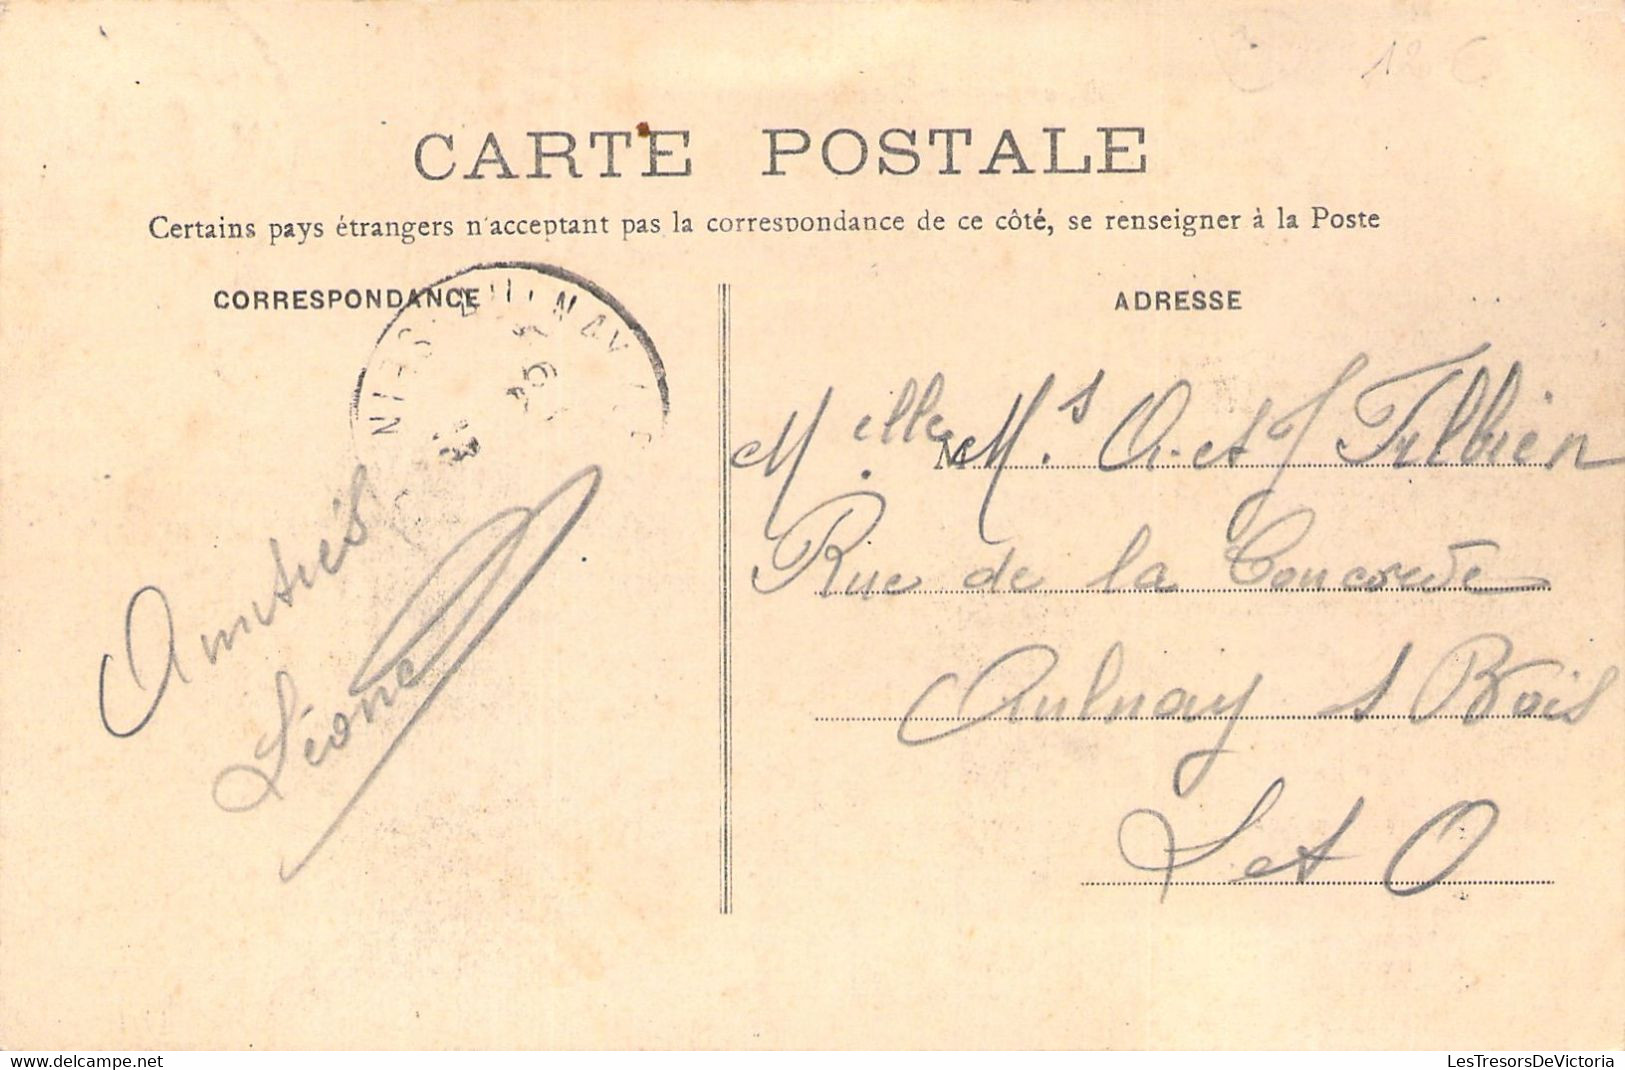 12 €
CARTE POSTALE
Certains pays étrangers n'acceptant pas la correspondance de ce côté, se renseigner à la Poste
CORRESPONDANCE
Amitiés
Léone
ADRESSE
Melle M Ms A. et J Filbien
Rue de la Concorde
Aulnay s Bois
S et O
LesTresorsDeVictoria